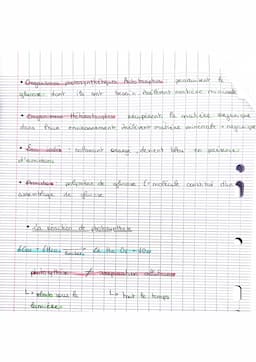 • Organismes photosynthétiques Autotrophes produisent le
glucose dont ils ont besoin. Prélèvent matière minérale
• Organismes Hétérotrophes récupèrent la matière organique
dans leur environnement prélèvent matière minérale + organique
• Eau iodée : colorant orange, devient bleu en présence
d'amidon
• Amidon polymère de glucose (= molécule constitué d'un
assemblage de glucose
• La réaction de photosynthèse
6CO2 + 6H2O → C6 H12 O6 + 6O2
lumière
photosynthèse ≠ respiration cellulaire
L> sous la L> tout le temps
lumière